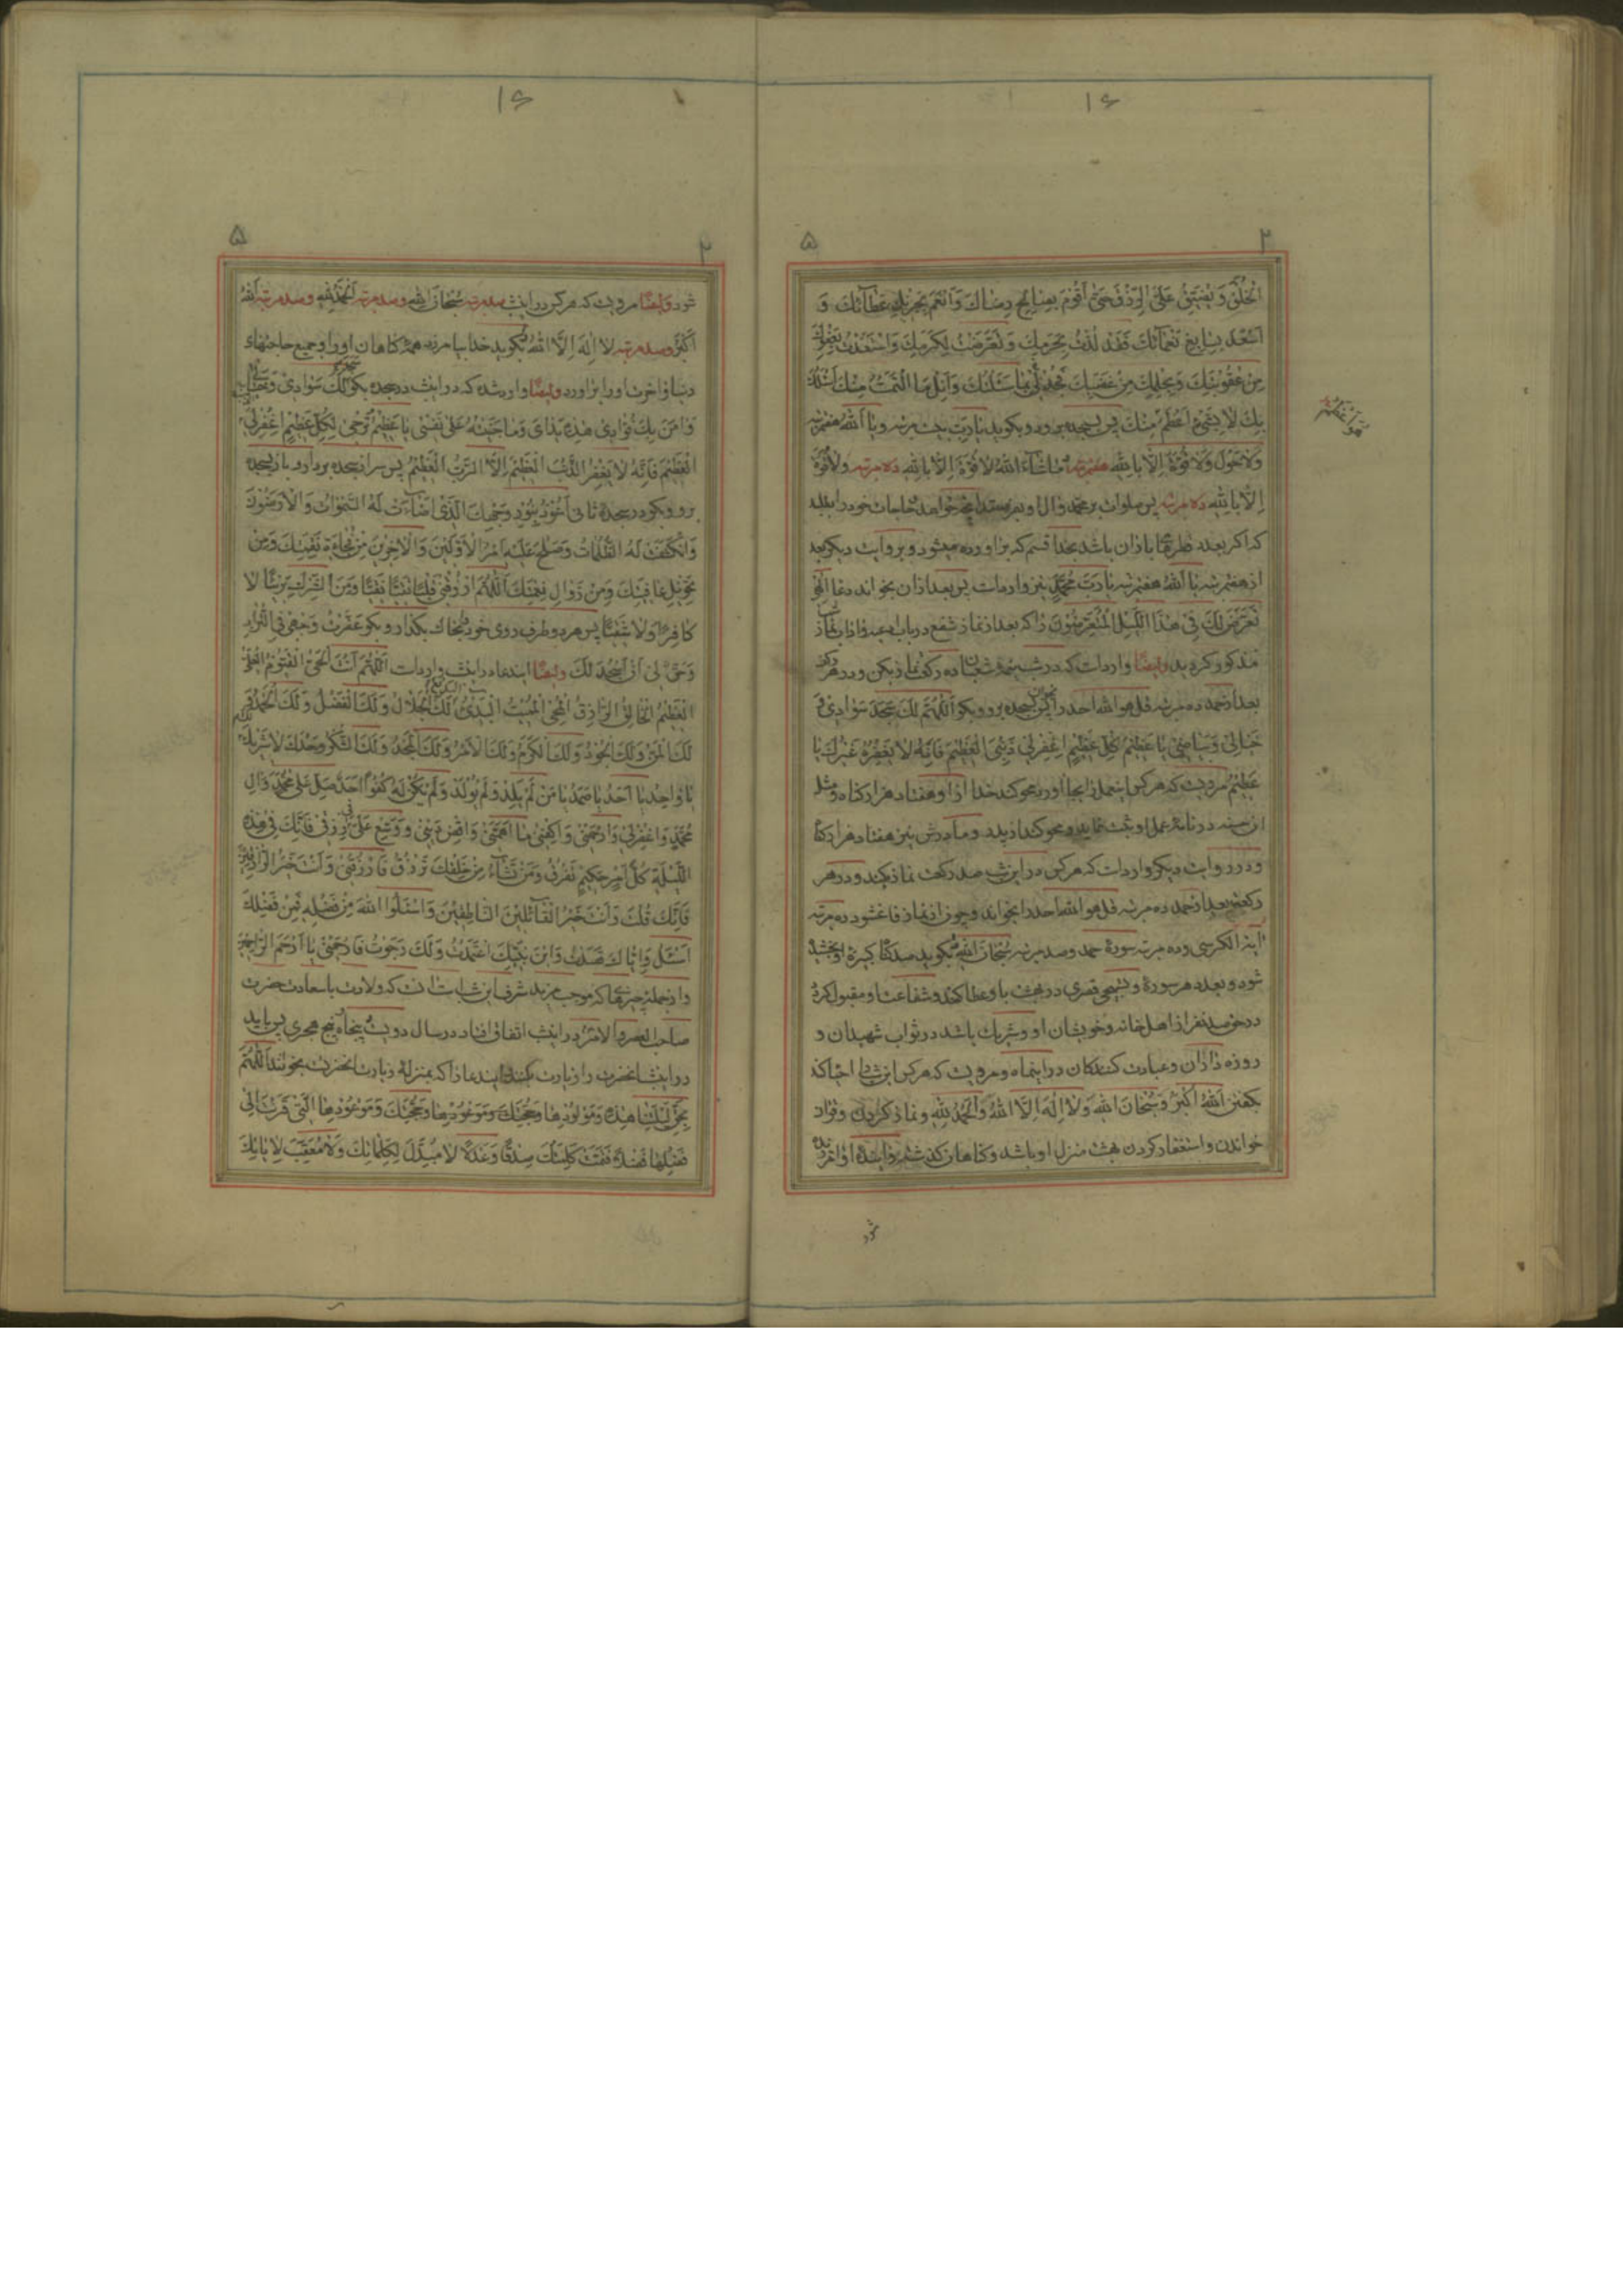 ۱۶
۲ ۵
الخلق و یضیق علی الرزق حتی أقوم بصالح رضاك و انعم بجزیل عطائك و
اسعد بسابغ نعمائك فقد لذت بحرمك و تعرضت لکرمك و استعذت بعفوك
من عقوبتك و بحلمك من غضبك فجد بما سئلتك و أنل ما التمست منك اسئلك
بك لا بشیء اعظم منك پس بسجده برود و بکوید یا رب بیست مرتبه و یا الله هفتمرتبه
و لا حول و لا قوة الا بالله هفتمرتبه ما شاء الله لا قوة الا بالله ده مرتبه و لا قوة
الا بالله ده مرتبه پس صلوات بر محمد و آل او بفرستد خواهد حاجات خود را بطلبد
که اکر بعدد قطرهای باران باشد بخدا قسم که براورده میشود و بروایت دیکر بعد
از هفتمرتبه یا الله هفتمرتبه یا رب محمد نیز واردست پس بعد ازان بخواند دعا الهی
تعرض لك فی هذا اللیل المتعرضون را که بعد از نماز شفع در باب
مذکور کردید و ایضا واردست که در شب نیمه شعبان ده رکعت نماز بکن و در هر رکعت
بعد از حمد ده مرتبه قل هو الله احد را بخوان پس بسجده برو و بکو اللهم لك سجد سوادی و
خیالی و بیاضی یا عظیم کل عظیم اغفر لی ذنبی العظیم فانه لا یغفره غیرك یا
عظیم مرویست که هر کس اینعمل را بجا آورد محو کند خدا ازا و هفتاد هزار کناه و مثل
ان حسنه در نامه عمل او ثبت نماید و محو کند از پدر و مادرش نیز هفتاد هزار کناه
و در روایت دیکر واردست که هر کس در این شب صد رکعت نماز بکند و در هر
رکعتی بعد از حمد ده مرتبه قل هو الله احد را بخواند و چون از نماز فارغ شود ده مرتبه
ایة الکرسی و ده مرتبه سورهٔ حمد و صد مرتبه سبحان الله بکوید صد کناه کبیرهٔ او بخشیده
شود و بعدد هر سورهٔ و تسبیحی قصری در بهشت باو عطا کنند و شفاعت او مقبول کردد
در حق صد نفر از اهل خانه و خویشان او و شریك باشد در ثواب شهیدان و
روزه داران و عبادت کنندکان در اینماه و مرویست که هر کس این شب را احیا کند
بکفتن الله اکبر و سبحان الله و لا اله الا الله و الحمد لله و نماز کردن و قران
خواندن و استغفار کردن بهشت منزل او باشد و کناهان کذشته و ایندهٔ او امرزیده
شود
۱۶
۲ ۵
شود و ایضا مرویست که هر کس در اینشب صد مرتبه سبحان الله و صد مرتبه الحمد لله و صد مرتبه الله
اکبر و صد مرتبه لا اله الا الله بکوید خدا بیامرزد همهٔ کناهان او را و جمیع حاجتهای
دنیا و اخرت او را براورد و ایضا وارد شده که در اینشب در سجده بکو سجد لك سوادی و خیالی
و امن بك فؤادی هذه یدای و ما جنیته علی نفسی یا عظیم ترجی لکل عظیم اغفر لی
العظیم فانه لا یغفر الذنب العظیم الا الرب العظیم پس سر از سجده بردارد و باز بسجده
برو و بکو در سجدهٔ ثانی اعوذ بنور وجهك الذی اضاءت له السموات و الارضون
و انکشفت له الظلمات و صلح علیه امر الاولین و الاخرین من فجاءة نقمتك و من
تحویل عافیتك و من زوال نعمتك اللهم ارزقنی قلبا تقیا نقیا و من الشرك بریئا لا
کافرا و لا شقیا پس هر دو طرف روی خود بخاك بکذار و بکو عفرت وجهی فی التراب
و حق لی ان اسجد لك و ایضا ایندعا در اینشب واردست اللهم انت الحی القیوم العلی
العظیم الخالق الرازق المحیی الممیت البدیء البدیع لك الجلال و لك الفضل و لك الحمد و
لك المن و لك الجود و لك الکرم و لك الامر و لك المجد و لك الشکر وحدك لا شریك لك
یا واحد یا احد یا صمد یا من لم یلد و لم یولد و لم یکن له کفوا احد صل علی محمد و ال
محمد و اغفر لی و ارحمنی و اکفنی ما اهمنی و اقض دینی و وسع علی فی رزقی فانك فی هذه
اللیلة کل امر حکیم تفرق و من تشاء من خلقك ترزق فارزقنی و انت خیر الرازقین
فانك قلت و انت خیر القائلین الناطقین و اسئلوا الله من فضله فمن فضلك
اسئل و ایاك قصدت و ابن نبیك اعتمدت و لك رجوت فارحمنی یا ارحم الراحمین
و از جمله چیزها که موجب مزید شرف این شبست انست که ولادت با سعادت حضرت
صاحب العصر و الامر در اینشب اتفاق افتاد در سال دویست و پنجاه و پنج هجری پس باید
در اینشب انحضرت را زیارت کنند بایندعا زا که بمنزلهٔ زیارت انحضرتست بخوانند اللهم
بحق لیلتنا هذه و مولودها و حجتك و موعودها التی قرنت الی
فضلها فضلا فتمت کلمتك صدقا و عدلا لا مبدل لکلماتك و لا معقب لایاتك